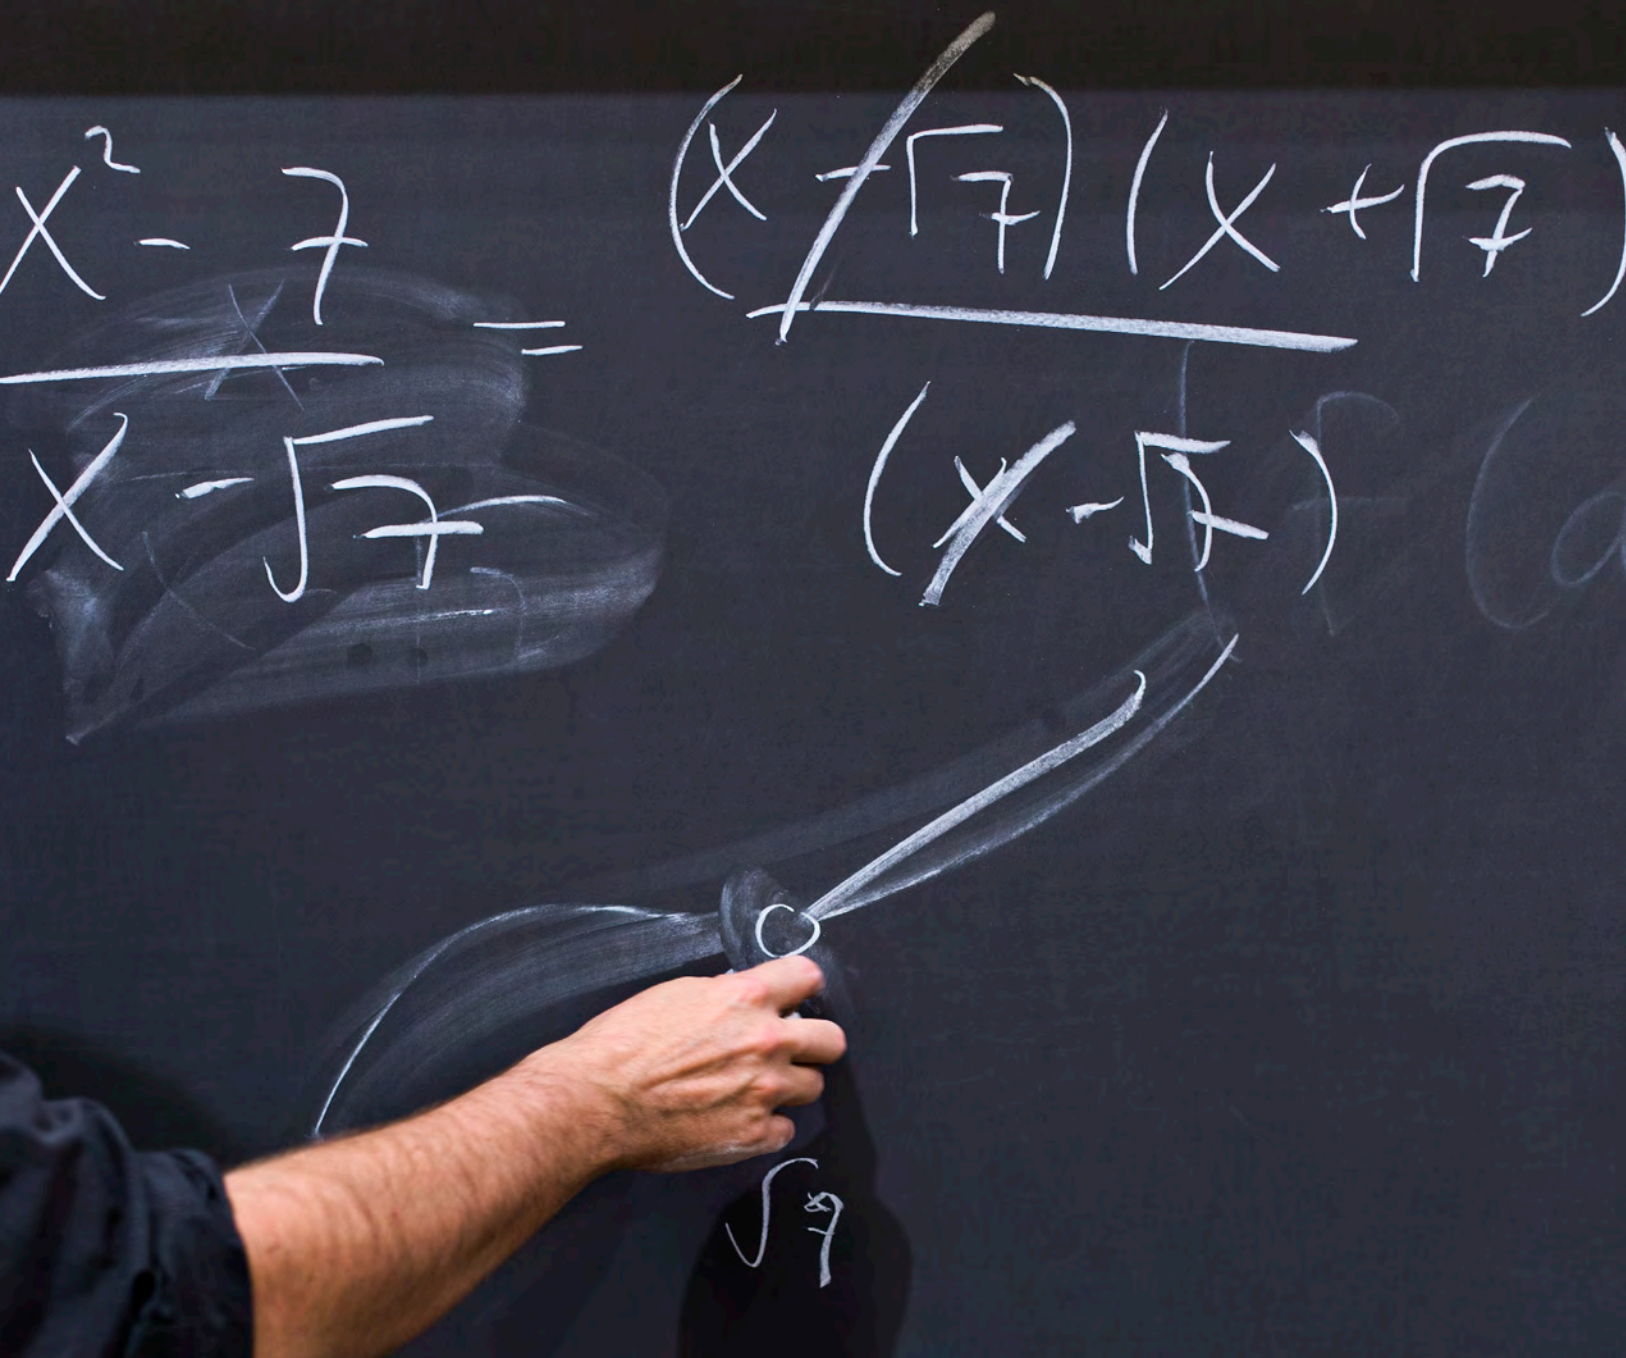 x² - 7 / x - √7 = (x - √7)(x + √7) / (x - √7)
√7